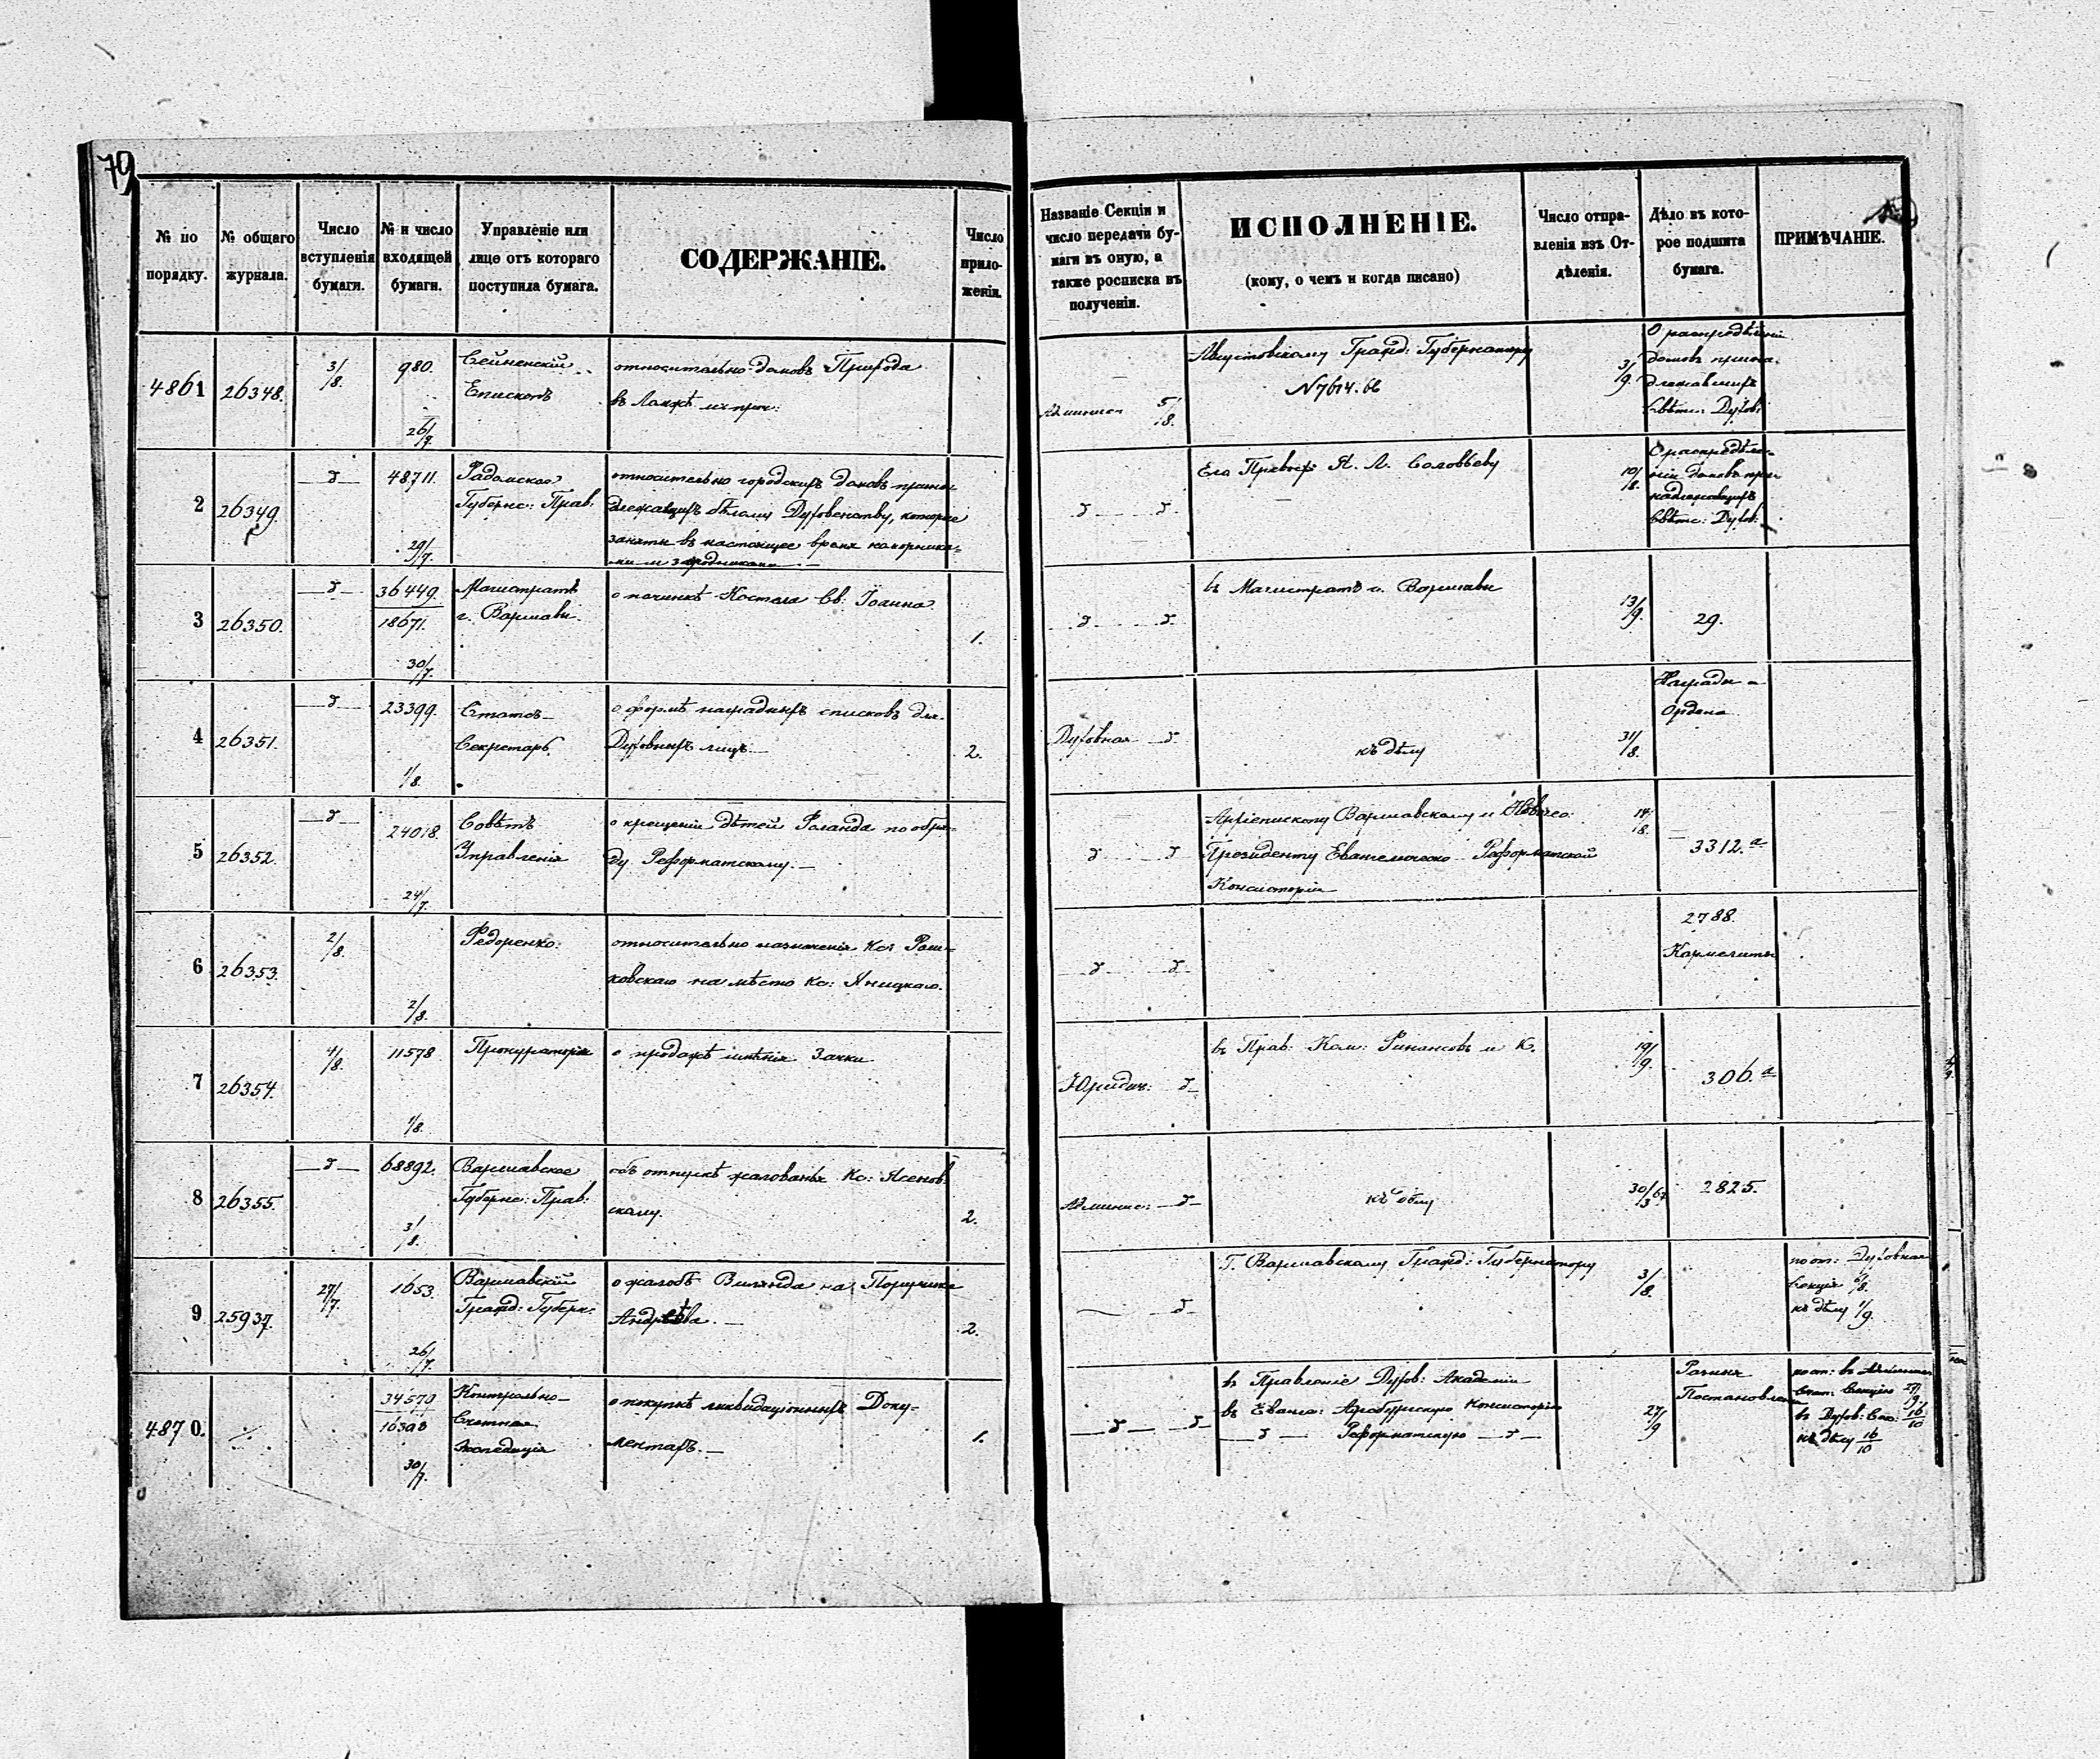 79
№ по порядку.
№ общаго журнала.
Число вступленія бумаги.
№ и число входящей бумаги.
Управленіе или лице отъ котораго поступила бумага.
СОДЕРЖАНІЕ.
Число прило-
женій.
Названіе Секціи и
число передачи бу-
маги въ оную, а
также росписка въ
полученіи.
ИСПОЛНЕНІЕ.
(кому, о чемъ и когда писано)
Число отпра-
вленія изъ От-
дѣленія.
Дѣло въ кото-
рое подшита
бумага.
ПРИМѢЧАНІЕ.
4861 26348. 3/8. 980. 26/7.
Сейненскій
Епископъ
относительно домовъ Природа
въ Ломжѣ и проч:
5/8.
Августовскому Гражд: Губернатору
N 7614.
3/9.
О распредѣленіи
домовъ прина-
длежавшихъ
Свѣтс: Духов:
2 26349. 48711. 29/7.
Радомское
Губернс: Прав:
относительно городскихъ домовъ прина-
длежавшихъ бѣлому Духовенству, которые
заняты въ настоящее время
Его Превосх: Я. А. Соловьеву
10/8.
О распредѣле-
ніи домовъ при-
надлежавшихъ
Свѣтс: Духов:
3 26350. 36449. 18671. 30/7.
Магистратъ
г. Варшавы.
о починкѣ Костела Св: Іоанна
1.
въ Магистратъ г. Варшавы
13/9.
29.
4 26351. 23399. 1/8.
Статсъ-
Секретарь.
о формѣ наградныхъ списковъ для
Духовныхъ лицъ.
2.
Духовная
къ дѣлу
31/8.
Награды
Ордена
5 26352. 24018. 24/7.
Совѣтъ
Управленія
о крещеніи дѣтей Роланда по обря-
ду Реформатскому.
Архіепископу Варшавскому и Новогео:
Президенту Евангелическо Реформатской
Консисторіи
14/8.
3312.а
6 26353. 2/8. 2/8.
Федоренко.
относительно назначенія Кс: Раш-
ковскаго на мѣсто Кс: Яницкаго.
2788.
Кармелиты
7 26354. 4/8. 11578. 1/8.
Прокураторія
о продажѣ имѣнія Занки
Юридич:
въ Прав: Ком: Финансовъ и К.
19/9.
306.а
8 26355. 68892. 3/8.
Варшавское
Губернс: Прав:
объ отпускѣ жалованья Кс: Ясенов-
скому.
2.
Админис:
къ дѣлу
30/3 67
2825.
9 25937. 27/7. 1653. 26/7.
Варшавскій
Гражд: Губерн:
о жалобѣ Вилянда на Поручика
Андреѣва.
2.
Г. Варшавскому Гражд: Губернатору
3/8.
пост: Духовная
Секція
къ дѣлу 1/9.
4870. 34579 30/7.
Контрольно-
Счетная
Экспедиція
о покупкѣ ликвидаціонныхъ Доку-
ментахъ.
1.
въ Правленіе Духов: Академіи
въ Еванг: Аугсбургскую Консисторію
Реформатскую
27/9
Разныя
Постановленія
въ Духов: Сек: 16/10
къ дѣлу 16/10